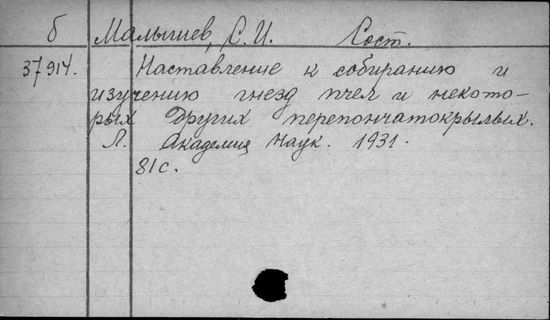 б Малышев, С. И. Сост.
37914. Наставление к собиранию и
изучению гнезд пчел и некото-
рых других перепончатокрылых.
Л. Академия Наук. 1931.
81 с.